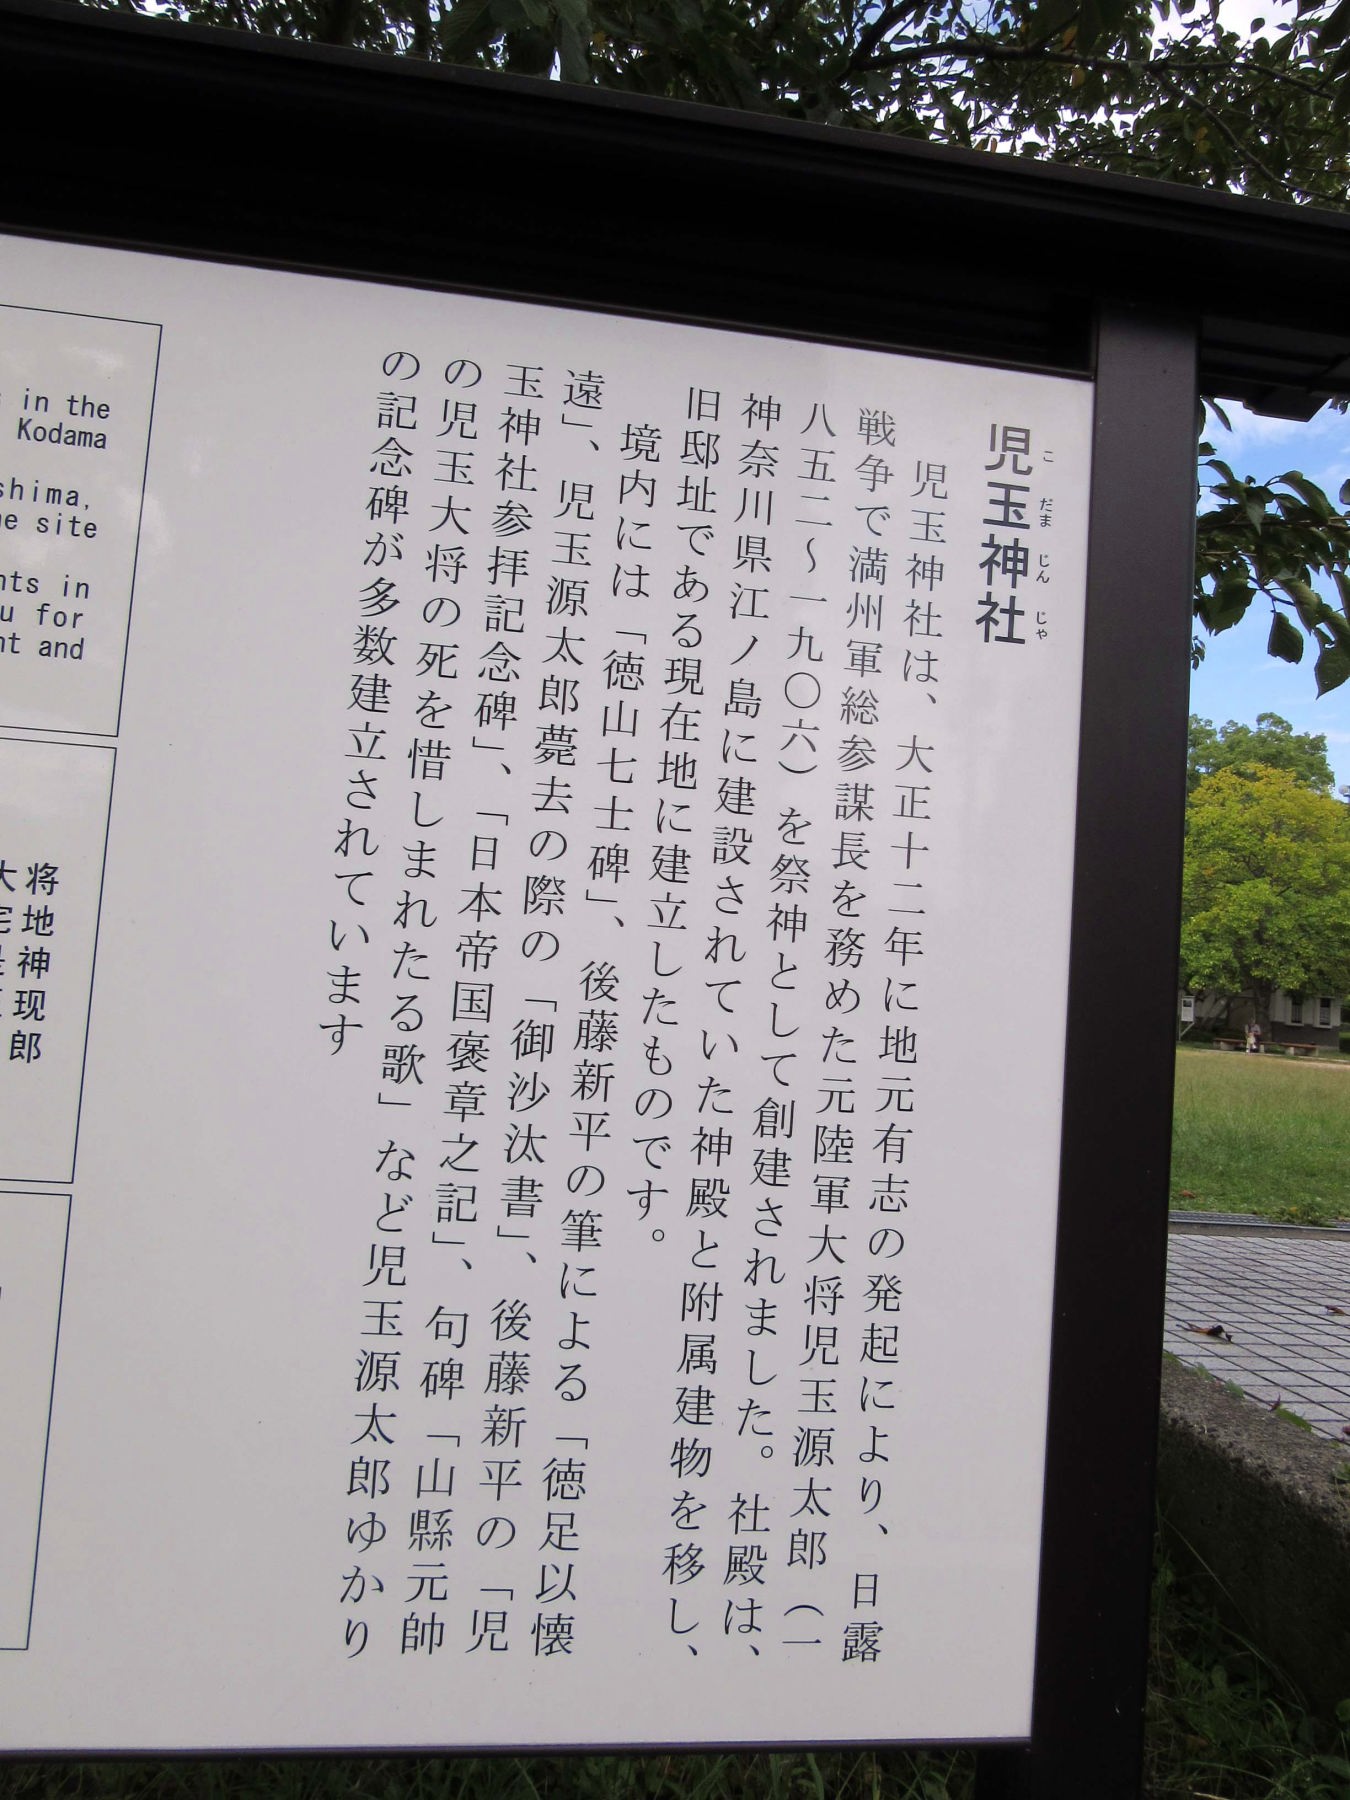 児玉神社
こ だま じん じゃ
児玉神社は、大正十二年に地元有志の発起により、日露
戦争で満州軍総参謀長を務めた元陸軍大将児玉源太郎（一
八五二～一九〇六）を祭神として創建されました。社殿は、
神奈川県江ノ島に建設されていた神殿と附属建物を移し、
旧邸址である現在地に建立したものです。
境内には「徳山七士碑」、後藤新平の筆による「徳足以懐
遠」、児玉源太郎薨去の際の「御沙汰書」、後藤新平の「児
玉神社参拝記念碑」、「日本帝国褒章之記」、句碑「山縣元帥
の児玉大将の死を惜しまれたる歌」など児玉源太郎ゆかり
の記念碑が多数建立されています
in the
Kodama
shima,
site
nts in
for
and
将
地
神
现
郎